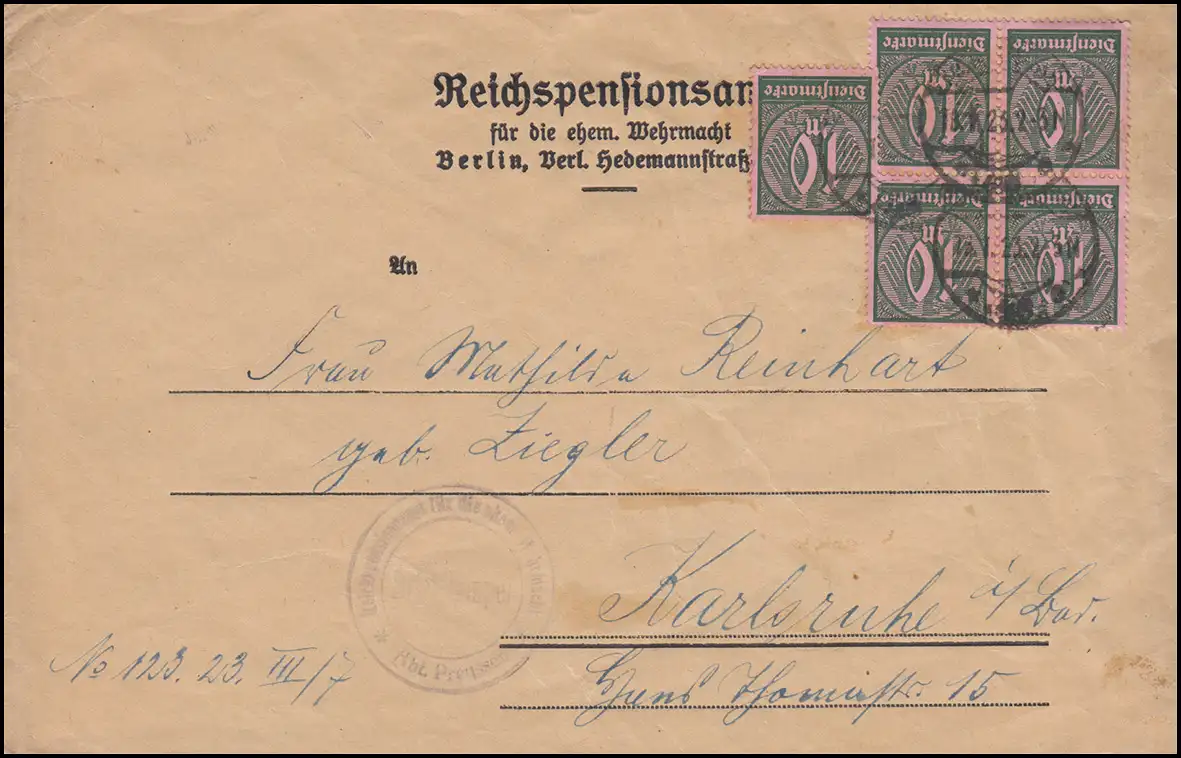 Reichspensionsam
für die ehem. Wehrmacht
Berlin, Verl. Hedemannstraß
Dienstmarke
10 M
Dienstmarke
10 M
Dienstmarke
10 M
Dienstmarke
10 M
Dienstmarke
10 M
An
Frau Mathilde Reinhart
geb. Ziegler
für die ehem.
Abt. Preussen
Karlsruhe i/Bad.
Hans Thomastr. 15
No 123. 23. III/7